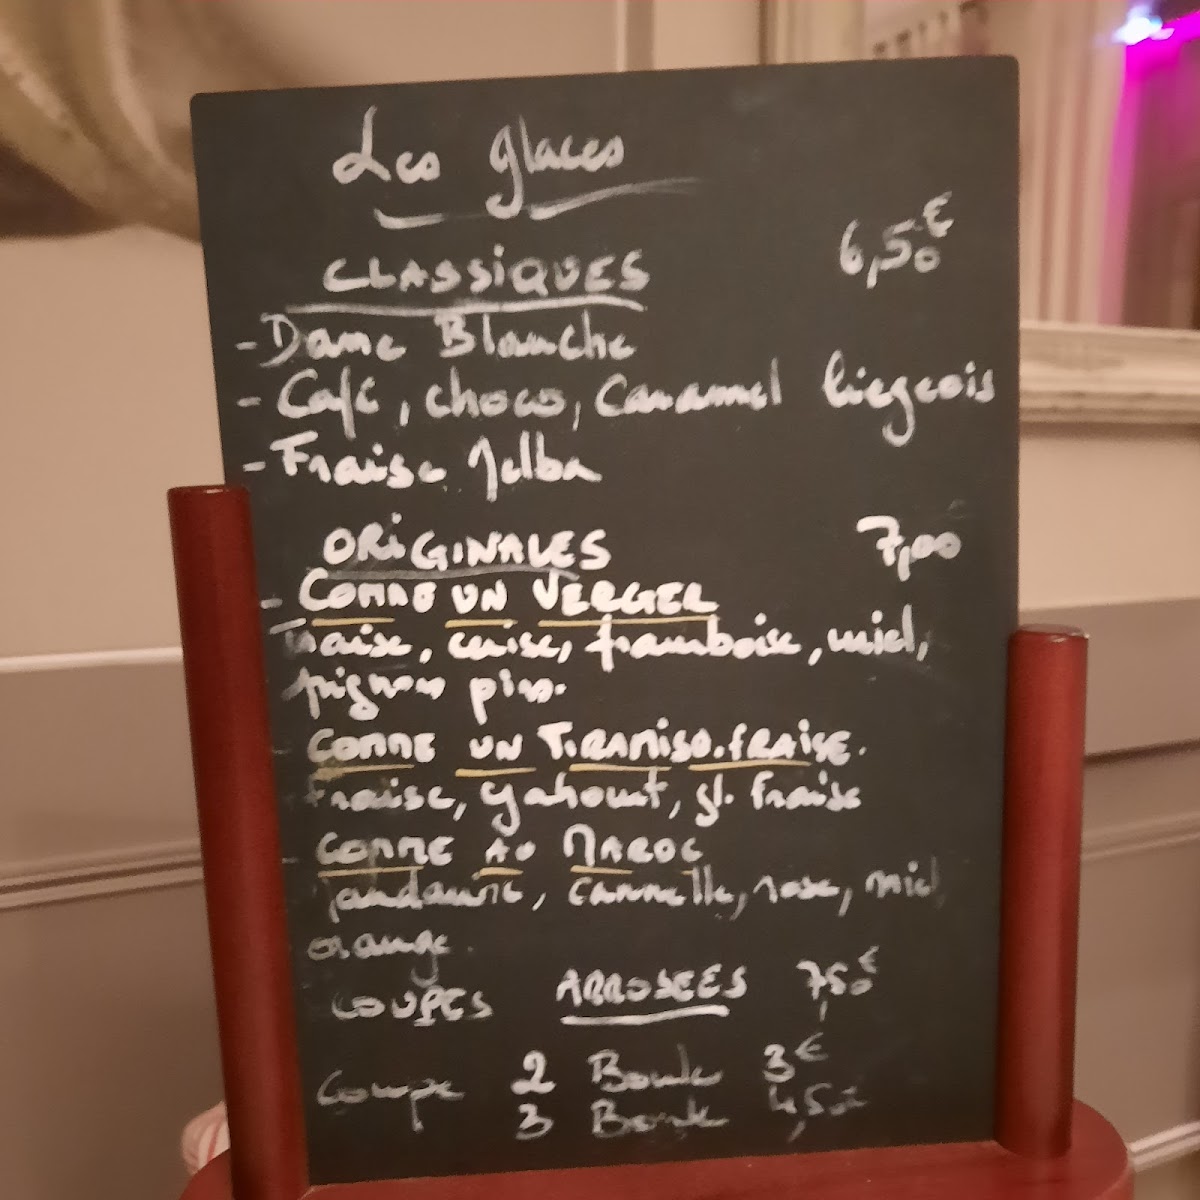 Les glaces
CLASSIQUES 6,50€
- Dame Blanche
- Café, choco, Caramel liegeois
- Fraise Melba
ORIGINALES 7,00
- COMME UN VERGER
Fraise, cerise, framboise, miel,
pignons pins.
- COMME UN TIRAMISU.FRAISE.
Fraise, yahourt, gl. fraise
- COMME AU MAROC
Mandarine, cannelle, rose, miel
orange.
COUPES ARROSEES 7,50€
Coupe 2 Boule 3€
3 Boule 4,50